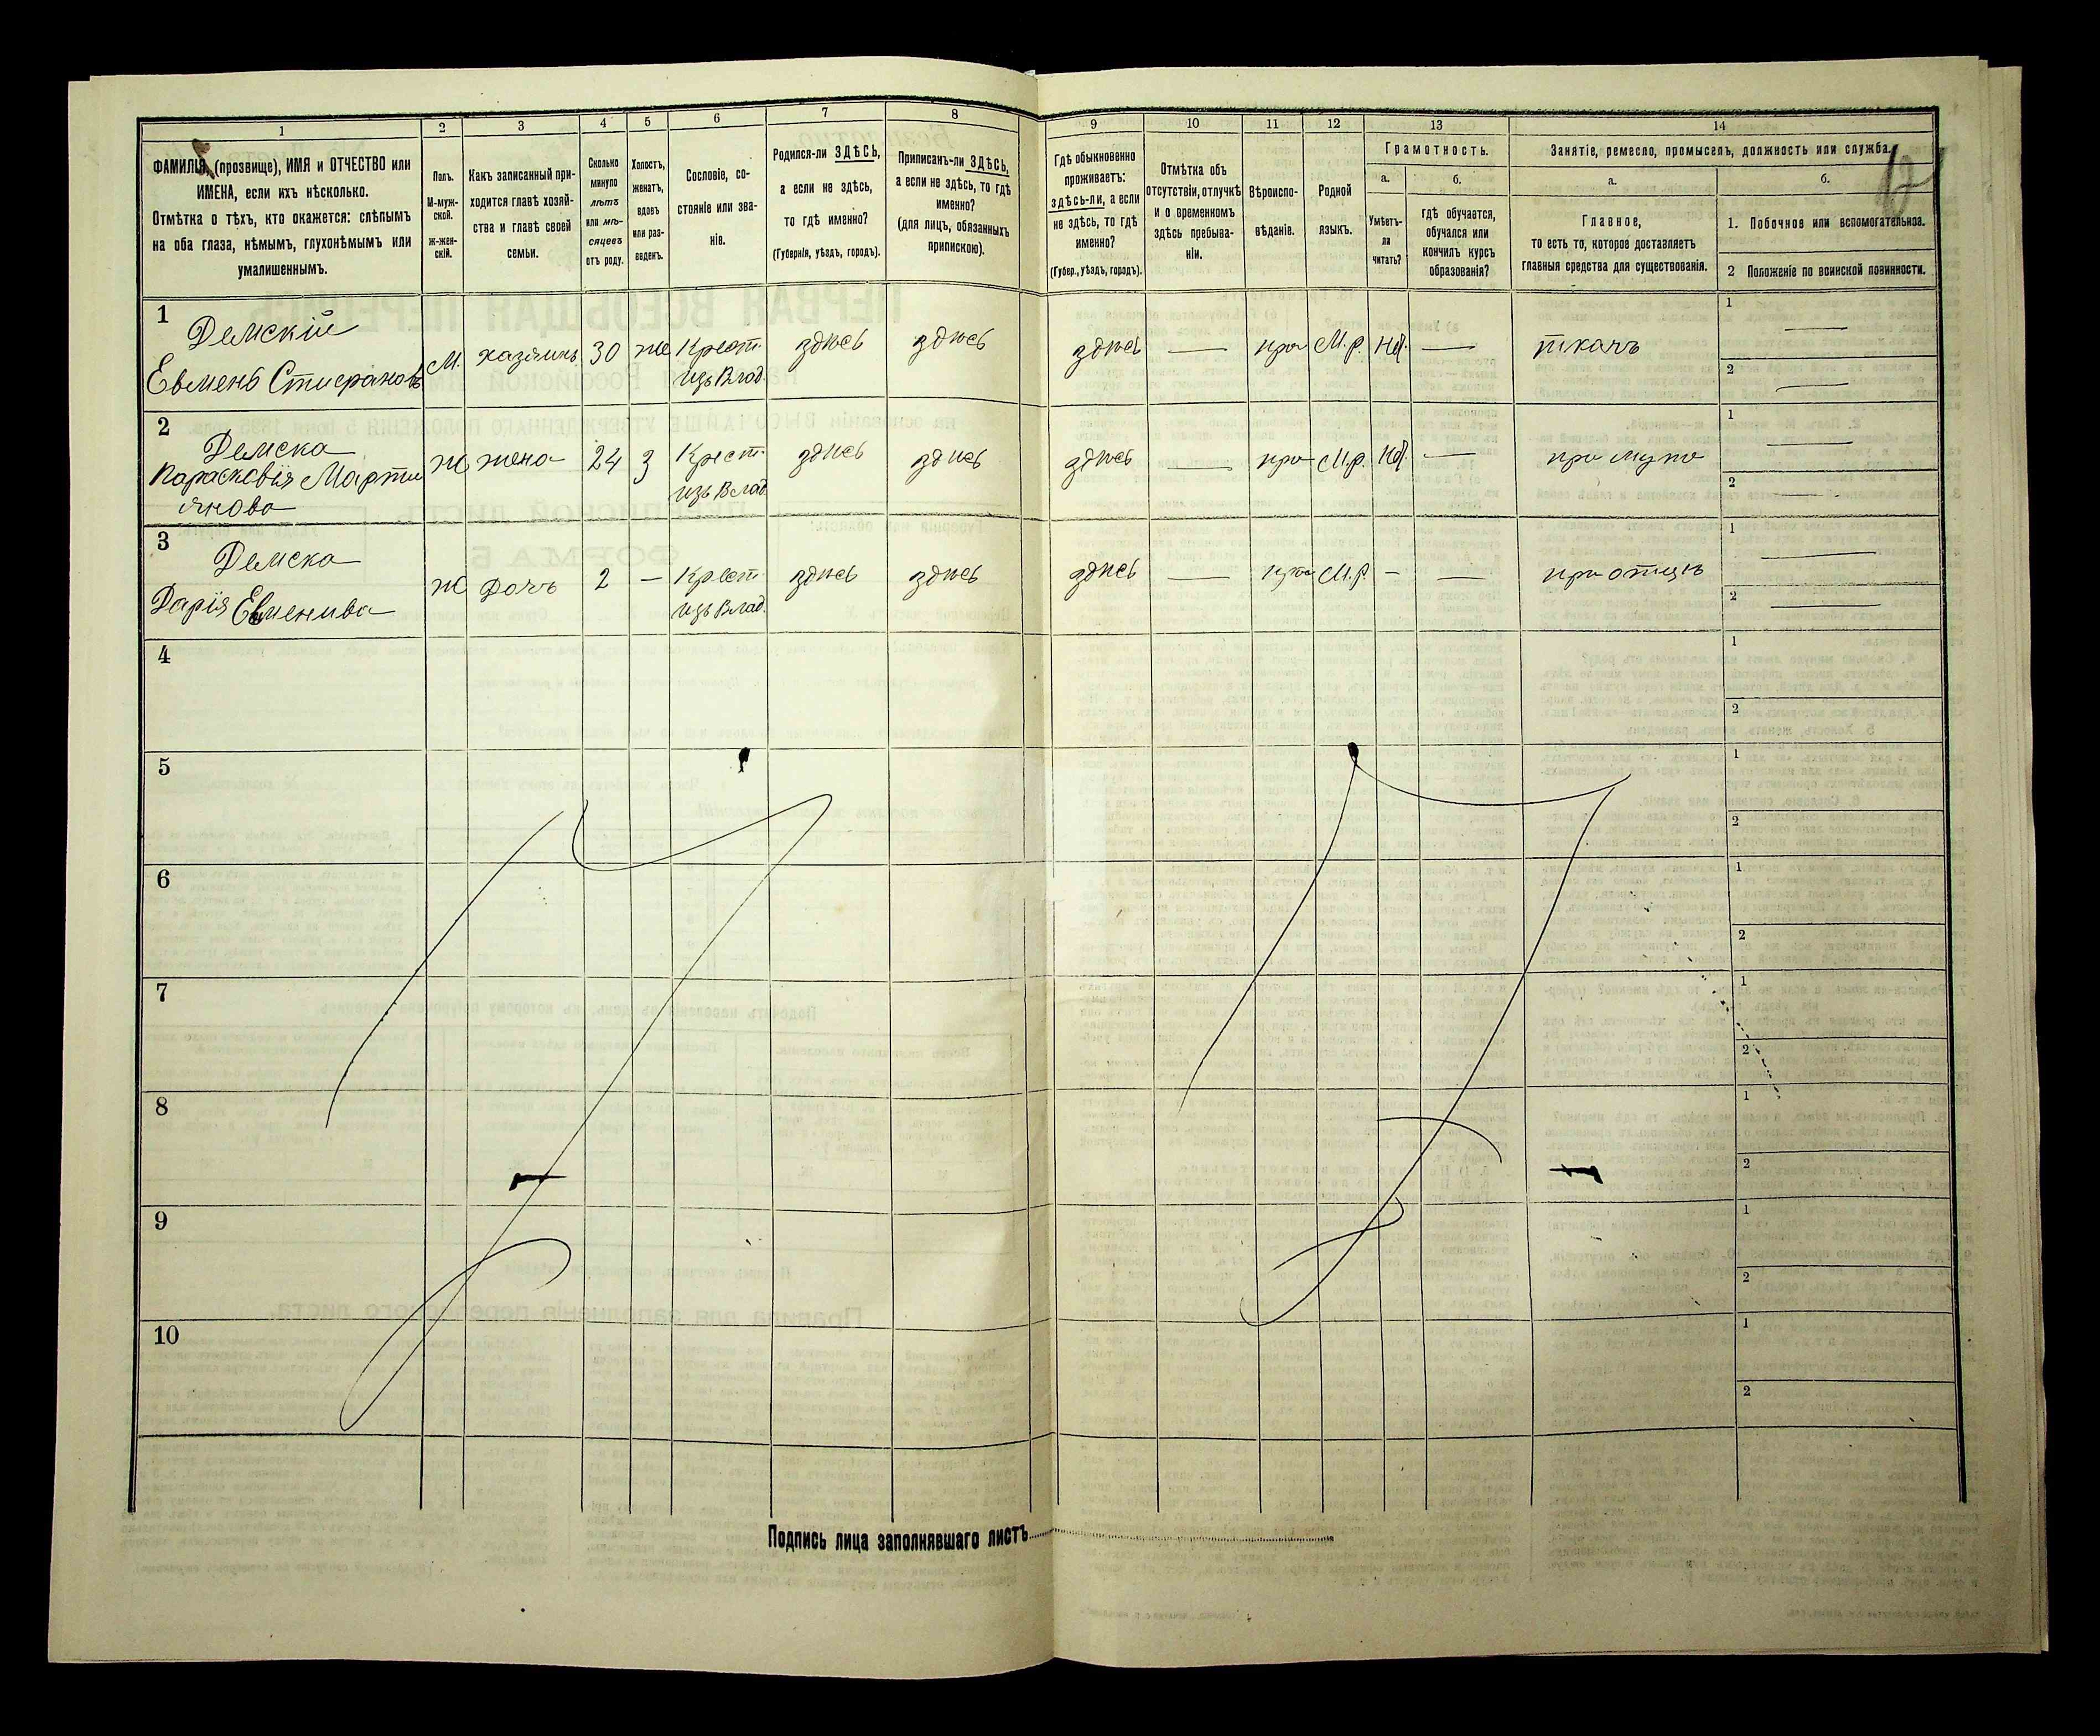 1 2 3 4 5 6 7 8 9 10 11 12 13 14
ФАМИЛІЯ, (прозвище), ИМЯ и ОТЧЕСТВО или
ИМЕНА, если ихъ нѣсколько.
Отмѣтка о тѣхъ, кто окажется: слѣпымъ
на оба глаза, нѣмымъ, глухонѣмымъ или
умалишеннымъ.
Полъ.
М-муж-
ской.
Ж-жен-
скій.
Какъ записанный при-
ходится главѣ хозяй-
ства и главѣ своей
семьи.
Сколько
минуло
лѣтъ
или мѣ-
сяцевъ
отъ роду.
Холостъ,
женатъ,
вдовъ
или раз-
веденъ.
Сословіе, со-
стояніе или зва-
ніе.
Родился-ли ЗДѢСЬ,
а если не здѣсь,
то гдѣ именно?
(Губернія, уѣздъ, городъ).
Приписанъ-ли ЗДѢСЬ,
а если не здѣсь, то гдѣ
именно?
(для лицъ, обязанныхъ
припискою).
Гдѣ обыкновенно
проживаетъ:
здѣсь-ли, а если
не здѣсь, то гдѣ
именно?
(Губер., уѣздъ, городъ).
Отмѣтка объ
отсутствіи, отлучкѣ
и о временномъ
здѣсь пребыва-
ніи.
Вѣроиспо-
вѣданіе.
Родной
языкъ.
Грамотность.
а.
Умѣетъ-
ли
читать?
б.
гдѣ обучается,
обучался или
кончилъ курсъ
образованія?
Занятіе, ремесло, промыселъ, должность или служба.
а.
Главное,
то есть то, которое доставляетъ
главныя средства для существованія.
б.
1. Побочное или вспомогательное.
2 Положеніе по воинской повинности.
1
Демскій
Евмень Стифановъ
М. хазяинъ 30 же Крест.
изъ Влад.
здѣсь здѣсь здѣсь — пра М.р. нѣ — ткачъ
1 —
2 —
2
Демска
Параскевія Марти
янова
Ж жена 24 З Крест.
изъ Влад.
здѣсь здѣсь здѣсь — пра М.р. нѣ — при мужѣ
1 —
2 —
3
Демска
Дарія Евменива
Ж дочъ 2 — Крест
изъ Влад.
здѣсь здѣсь здѣсь — пра М.р. — — при отцѣ
1 —
2 —
4
1
2
5
1
2
6
1
2
7
1
2
8
1
2
9
1
2
10
1
2
Подпись лица заполнявшаго листъ